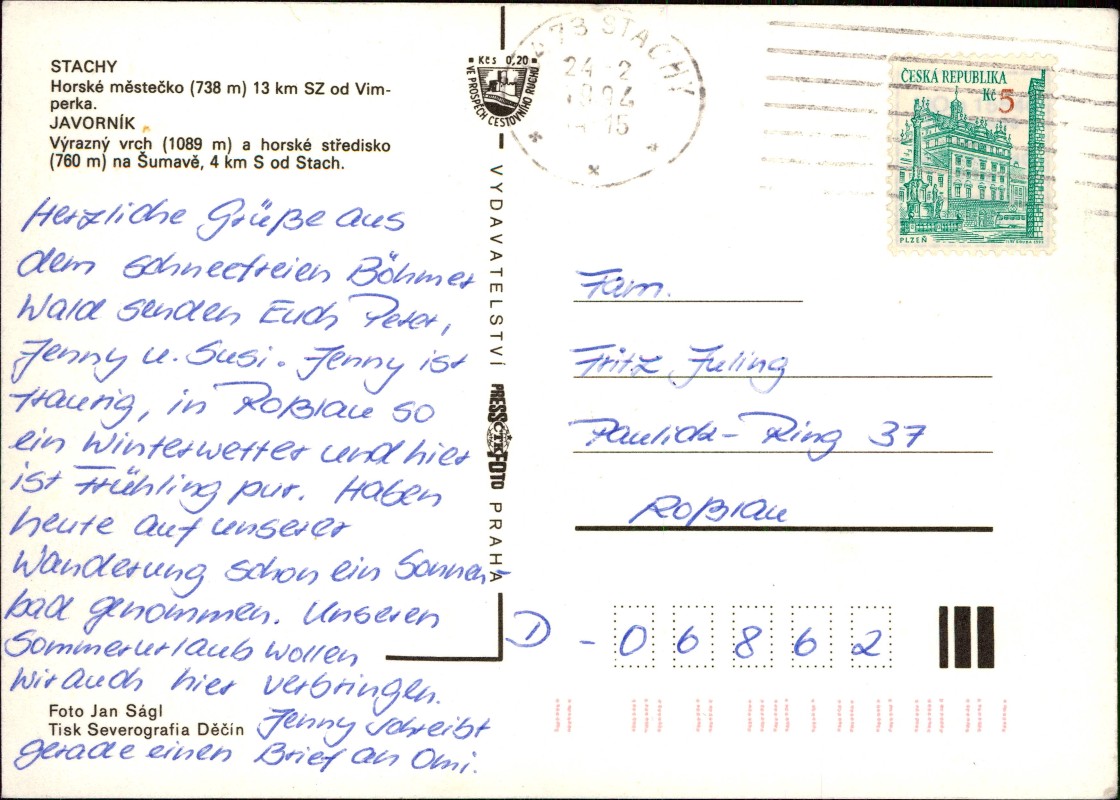 STACHY
Horské městečko (738 m) 13 km SZ od Vim-
perka.
JAVORNÍK
Výrazný vrch (1089 m) a horské středisko
(760 m) na Šumavě, 4 km S od Stach.
Herzliche Grüße aus
dem schneefreien Böhmer
Wald senden Euch Peter,
Jenny u. Susi. Jenny ist
traurig, in Roßlau so
ein Winterwetter und hier
ist Frühling pur. Haben
heute auf unserer
Wanderung schon ein Sonnen-
bad genommen. Unseren
Sommerurlaub wollen
wir auch hier verbringen.
Jenny schreibt
gerade einen Brief an Omi.
Foto Jan Ságl
Tisk Severografia Děčín
Kčs 0,20
VE PROSPĚCH CESTOVNÍHO RUCHU
VYDAVATELSTVÍ PRESSFOTO PRAHA
ČTK
473 STACHY
24-2
1994
15
ČESKÁ REPUBLIKA
Kč 5
PLZEŇ
Fam.
Fritz Juling
Paulick-Ring 37
Roßlau
D - 06862